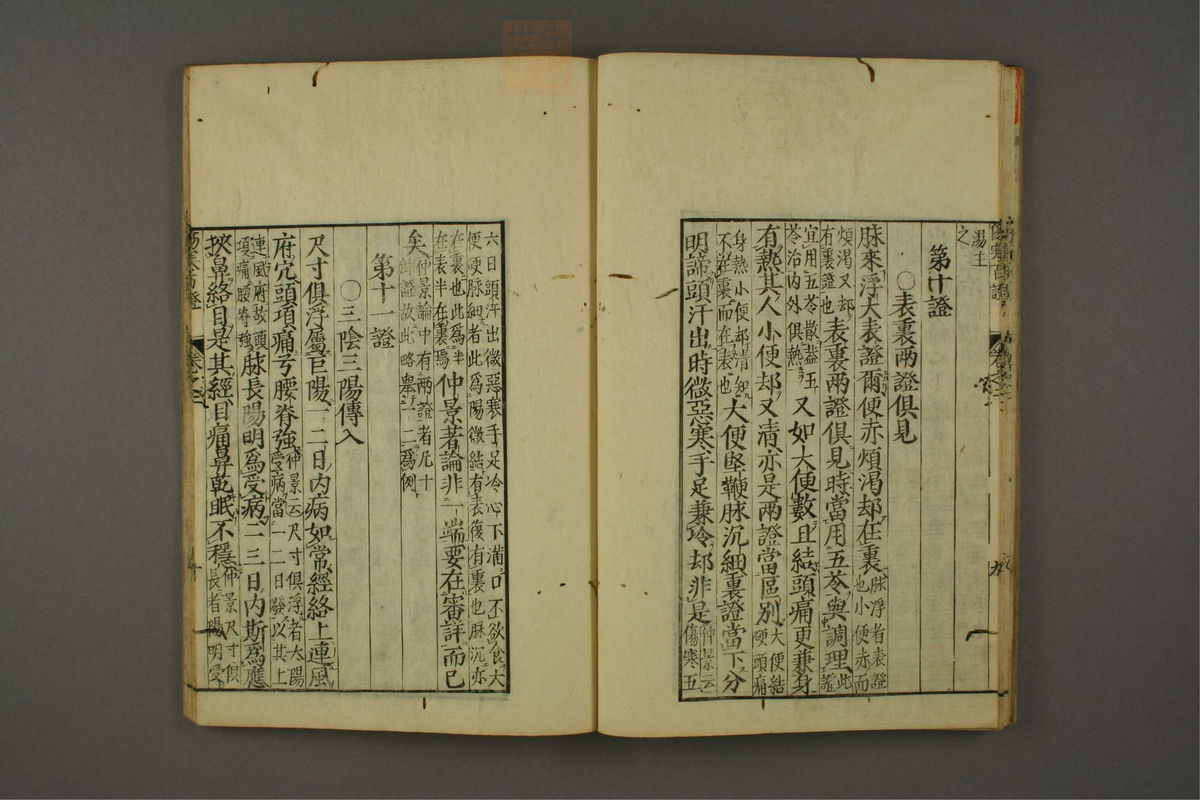 湯主
之
第十證
○表裏兩證俱見
脉來浮大表證爾便赤煩渴却在裏脉浮者表證也小便赤而
煩渴又却有裏證也表裏兩證俱見時當用五苓與調理此證
宜用五苓散蓋五苓治內外俱熱又如大便數且結頭痛更兼身
有熱其人小便却又清亦是兩證當區別大便結硬頭痛
身熱小便却清知不在裏而在表也大便堅鞕脉沉細裏證當下分
明諦頭汗出時微惡寒手足兼冷却非是仲景云傷寒五
六日頭汗出微惡寒手足冷心下滿口不欲食大
便硬脉細者此爲陽微結有表復有裏也脉沉亦
在裏也此爲半在表半在裏焉仲景著論非一端要在審詳而已
矣仲景論中有兩證者凡十餘證故此略舉一二爲例
第十一證
○三陰三陽傳入
尺寸俱浮屬巨陽一二日內病如常經絡上連風
府穴頭項痛兮腰脊強仲景云尺寸俱浮者太陽受病當一二日發以其上
連風府故頭項痛腰脊強脉長陽明爲受病二三日內斯爲應
挾鼻絡目是其經目痛鼻乾眠不穩仲景尺寸俱長者陽明受